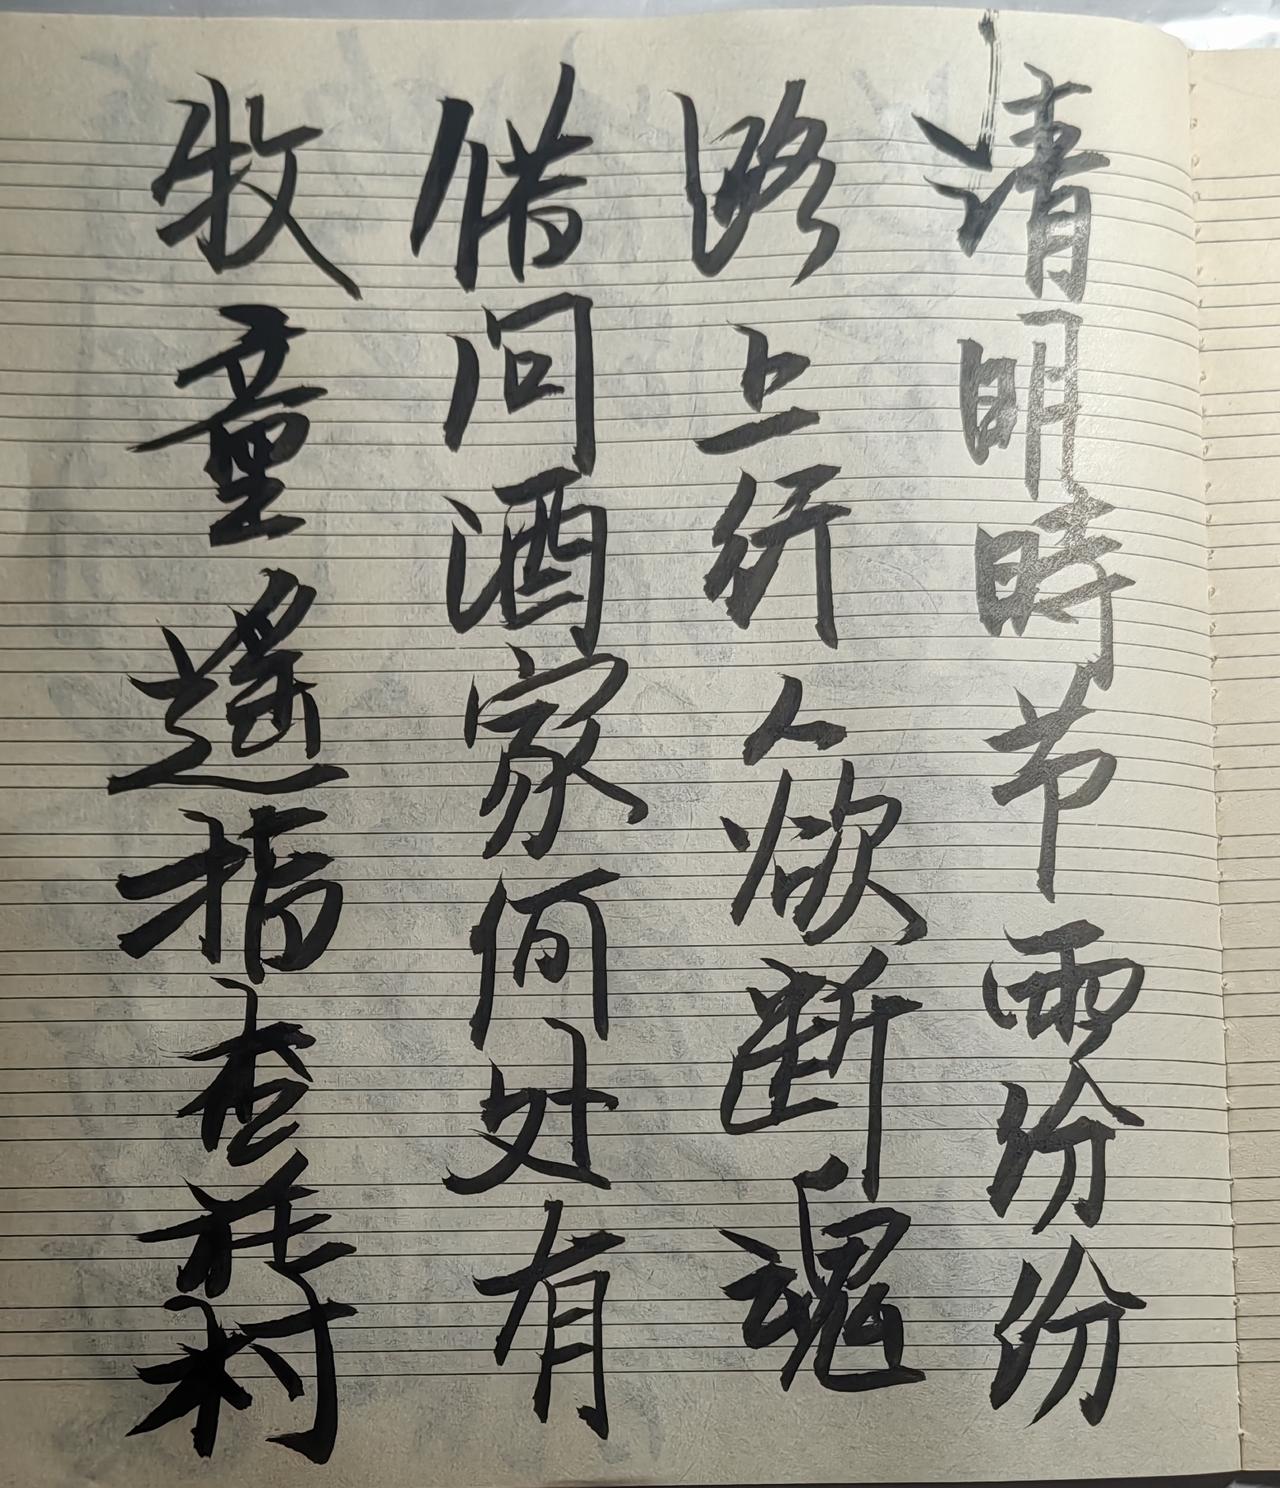 清明時节雨纷纷
路上行人欲断魂
借问酒家何处有
牧童遙指杏花村